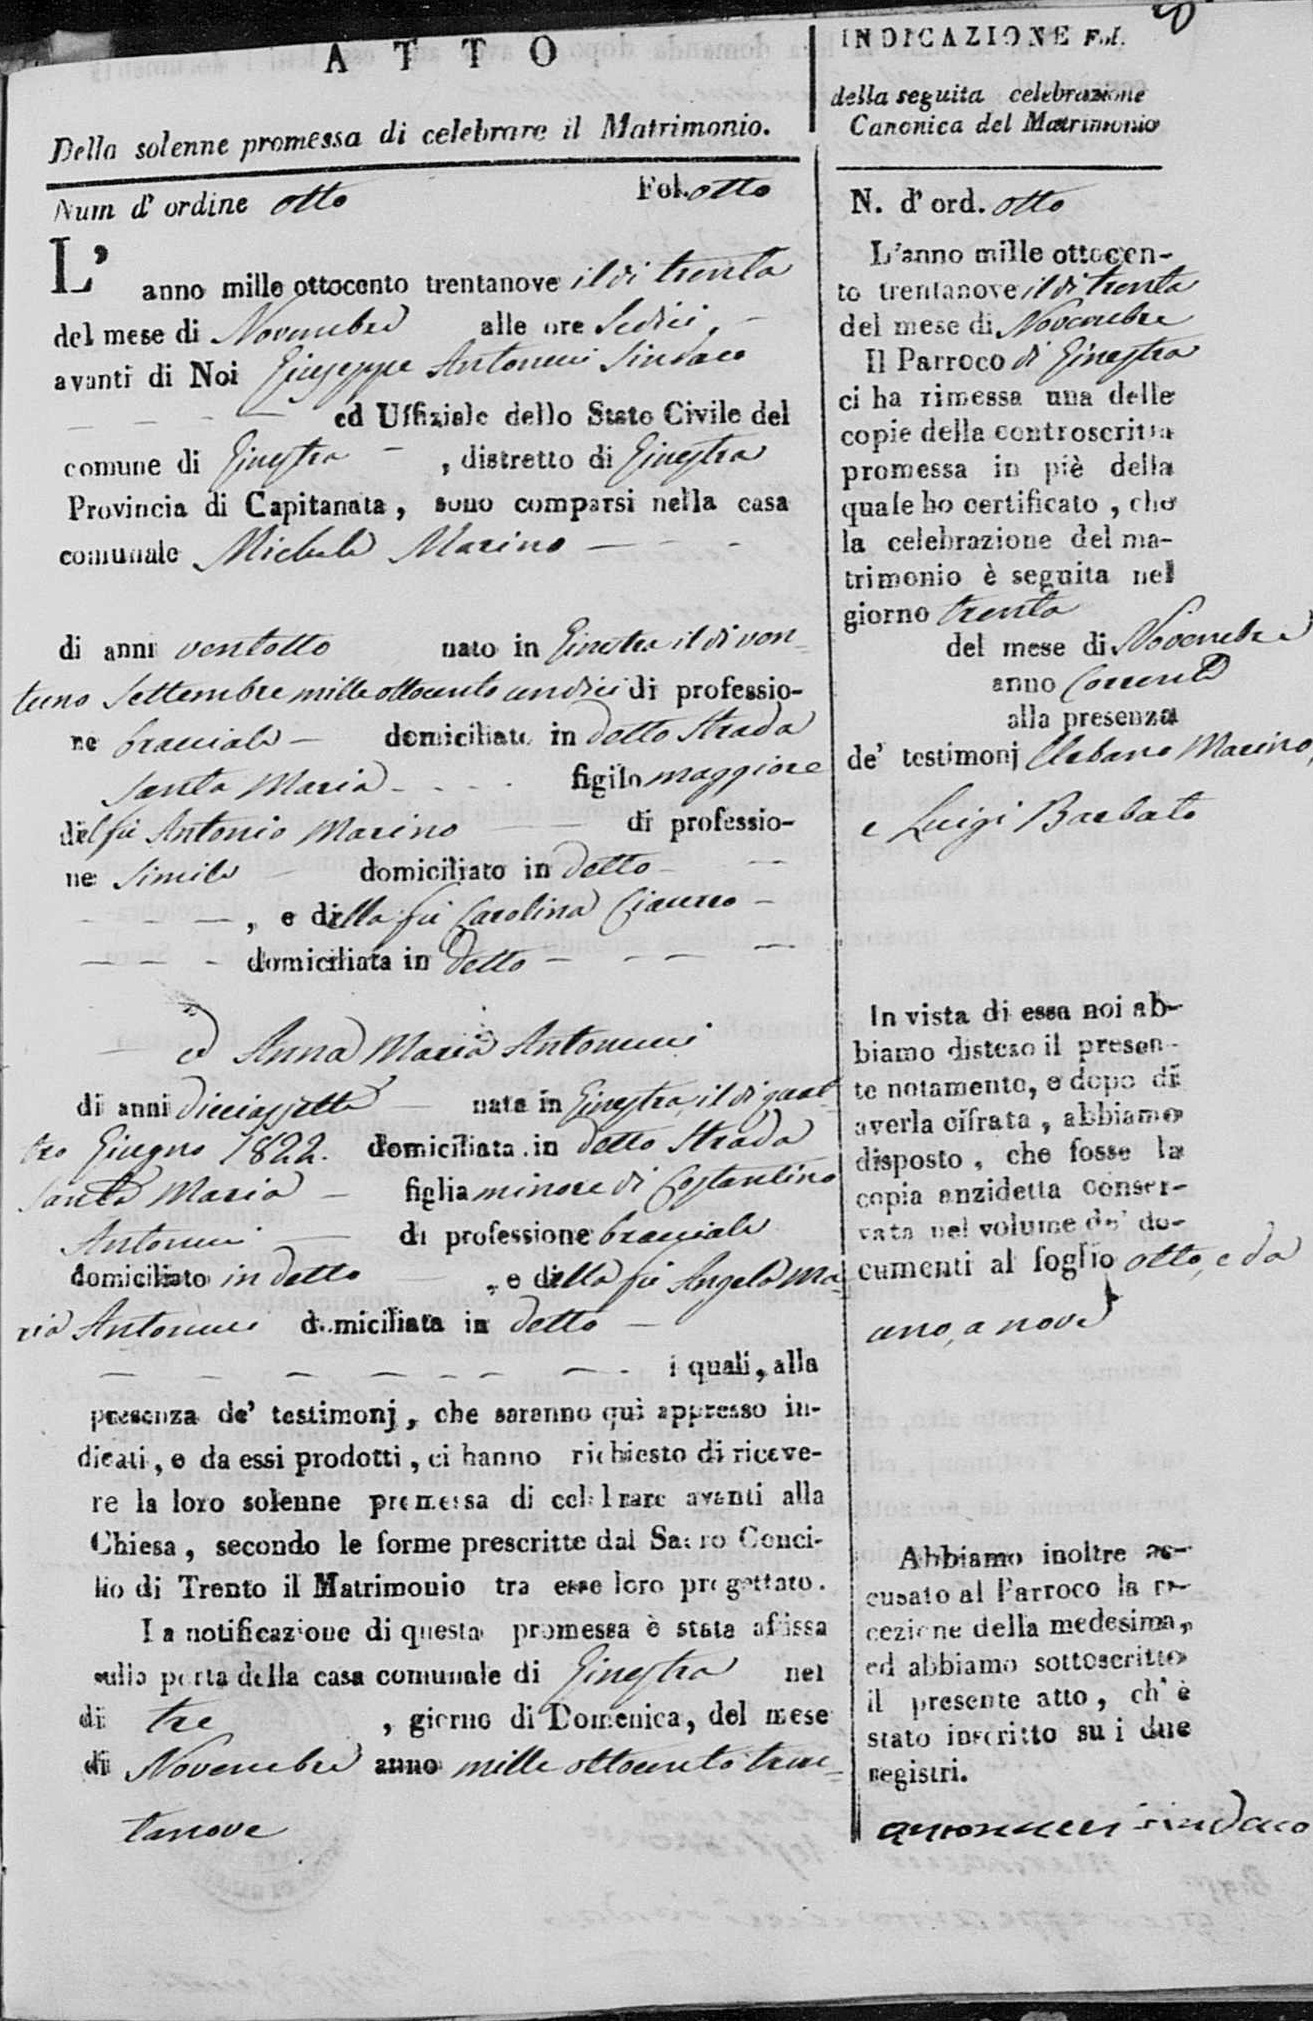 ATTO
Della solenne promessa di celebrare il Matrimonio.
Num d' ordine otto Fol. otto
L'
anno mille ottocento trentanove il di trenta
del mese di Novembre alle ore Sedici,
avanti di Noi Giuseppe Antonucci Sindaco
ed Uffiziale dello Stato Civile del
comune di Ginestra , distretto di Ginestra
Provincia di Capitanata, sono comparsi nella casa
comunale Michele Marino
di anni ventotto nato in Ginestra il di ven=
tuno Settembre mille ottocento undici di professio-
ne bracciale domiciliato in detto Strada
Santa Maria figilo maggiore
del fu Antonio Marino di professio-
ne simile domiciliato in detto
, e della fu Carolina Ciaurro
domiciliata in detto
ed Anna Maria Antonucci
di anni diciassette nata in Ginestra il di quat=
tro Giugno 1822. domiciliata in detto Strada
Santa Maria figlia minore di Costantino
Antonucci di professione bracciale
domiciliato in detto , e della fu Angela Ma=
ria Antonucci domiciliata in detto
i quali, alla
presenza de' testimonj, che saranno qui appresso in-
dicati, e da essi prodotti, ci hanno richiesto di riceve-
re la loro solenne promessa di celebrare avanti alla
Chiesa, secondo le forme prescritte dal Sacro Conci-
lio di Trento il Matrimonio tra esse loro progettato.
La notificazione di questa promessa è stata affissa
sulla porta della casa comunale di Ginestra nel
di tre , giorno di Domenica, del mese
di Novembre anno mille ottocento tren=
tanove
INDICAZIONE Fol. 8
della seguita celebrazione
Canonica del Matrimonio
N. d' ord. otto
L'anno mille ottocen-
to trentanove il di trenta
del mese di Novembre
Il Parroco di Ginestra
ci ha rimessa una delle
copie della controscritta
promessa in piè della
quale ho certificato, che
la celebrazione del ma-
trimonio è seguita nel
giorno trenta
del mese di Novembre
anno Corrente
alla presenza
de' testimonj Urbano Marino,
e Luigi Barbato
In vista di essa noi ab-
biamo disteso il presen-
te notamento, e dopo di
averla cifrata, abbiamo
disposto, che fosse la
copia anzidetta conser-
vata nel volume de' do-
cumenti al foglio otto, e da
uno, a nove
Abbiamo inoltre ac-
cusato al Parroco la re-
cezione della medesima,
ed abbiamo sottoscritto
il presente atto, ch' è
stato inscritto su i due
registri.
Antonucci sindaco